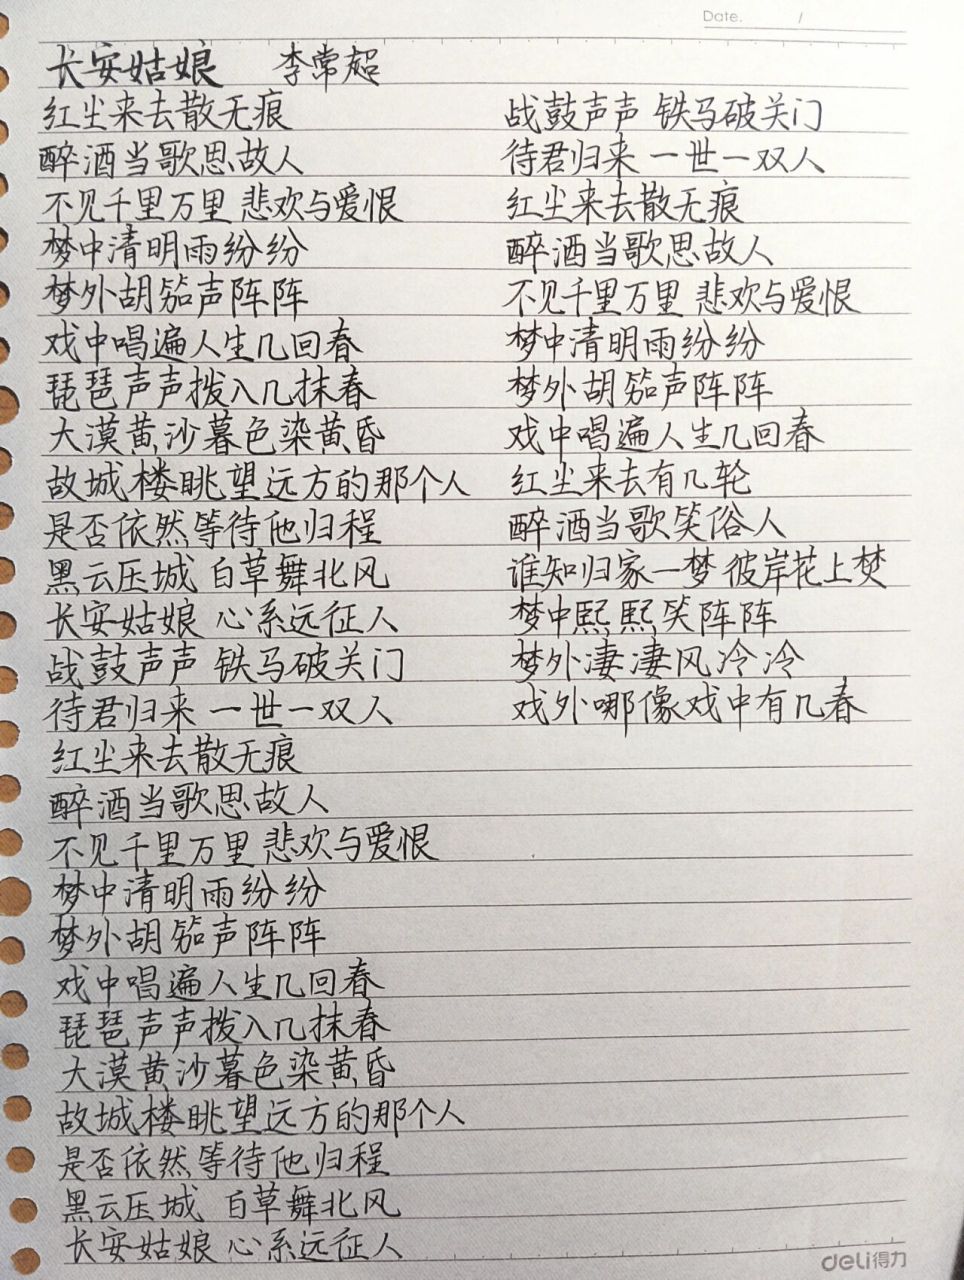 Date. /
长安姑娘 李常超
红尘来去散无痕
醉酒当歌思故人
不见千里万里 悲欢与爱恨
梦中清明雨纷纷
梦外胡笳声阵阵
戏中唱遍人生几回春
琵琶声声拨入几抹春
大漠黄沙暮色染黄昏
故城楼眺望远方的那个人
是否依然等待他归程
黑云压城 白草舞北风
长安姑娘 心系远征人
战鼓声声 铁马破关门
待君归来 一世一双人
红尘来去散无痕
醉酒当歌思故人
不见千里万里 悲欢与爱恨
梦中清明雨纷纷
梦外胡笳声阵阵
戏中唱遍人生几回春
琵琶声声拨入几抹春
大漠黄沙暮色染黄昏
故城楼眺望远方的那个人
是否依然等待他归程
黑云压城 白草舞北风
长安姑娘 心系远征人
战鼓声声 铁马破关门
待君归来 一世一双人
红尘来去散无痕
醉酒当歌思故人
不见千里万里 悲欢与爱恨
梦中清明雨纷纷
梦外胡笳声阵阵
戏中唱遍人生几回春
红尘来去有几轮
醉酒当歌笑俗人
谁知归家一梦 彼岸花上焚
梦中熙熙笑阵阵
梦外凄凄风冷冷
戏外哪像戏中有几春
deli得力